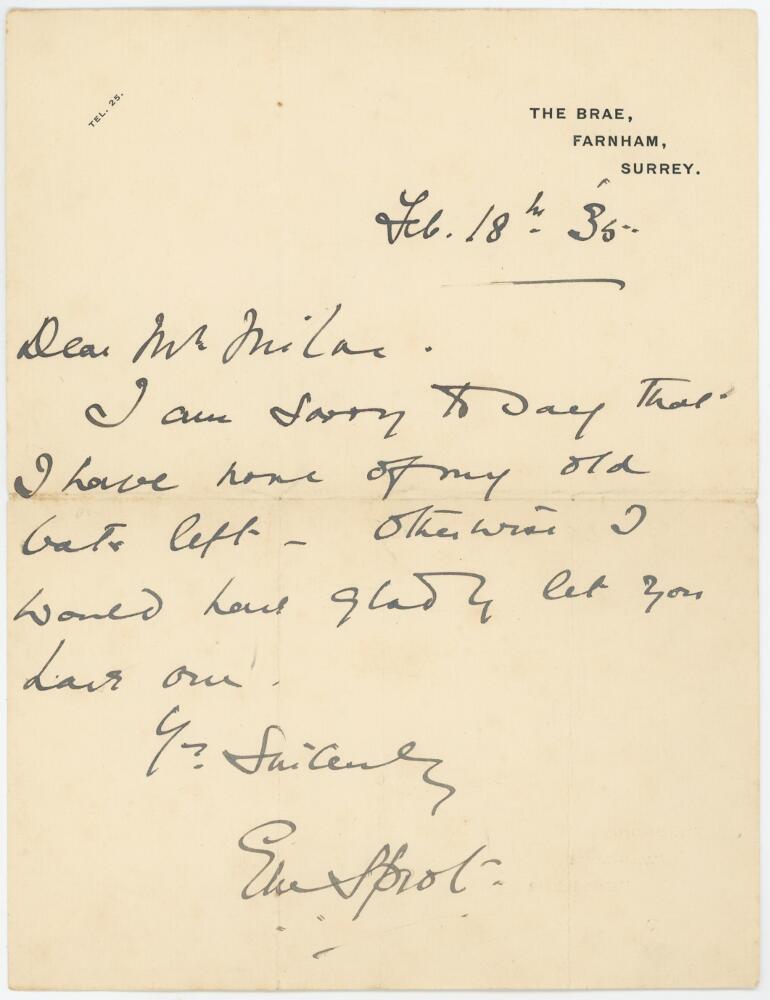 TEL. 25.
THE BRAE,
FARNHAM,
SURREY.
Feb. 18th 35
Dear Mr Milne.
I am sorry to say that
I have none of my old
bats left - otherwise I
would have gladly let you
have one.
Yrs Sincerely
Sprot